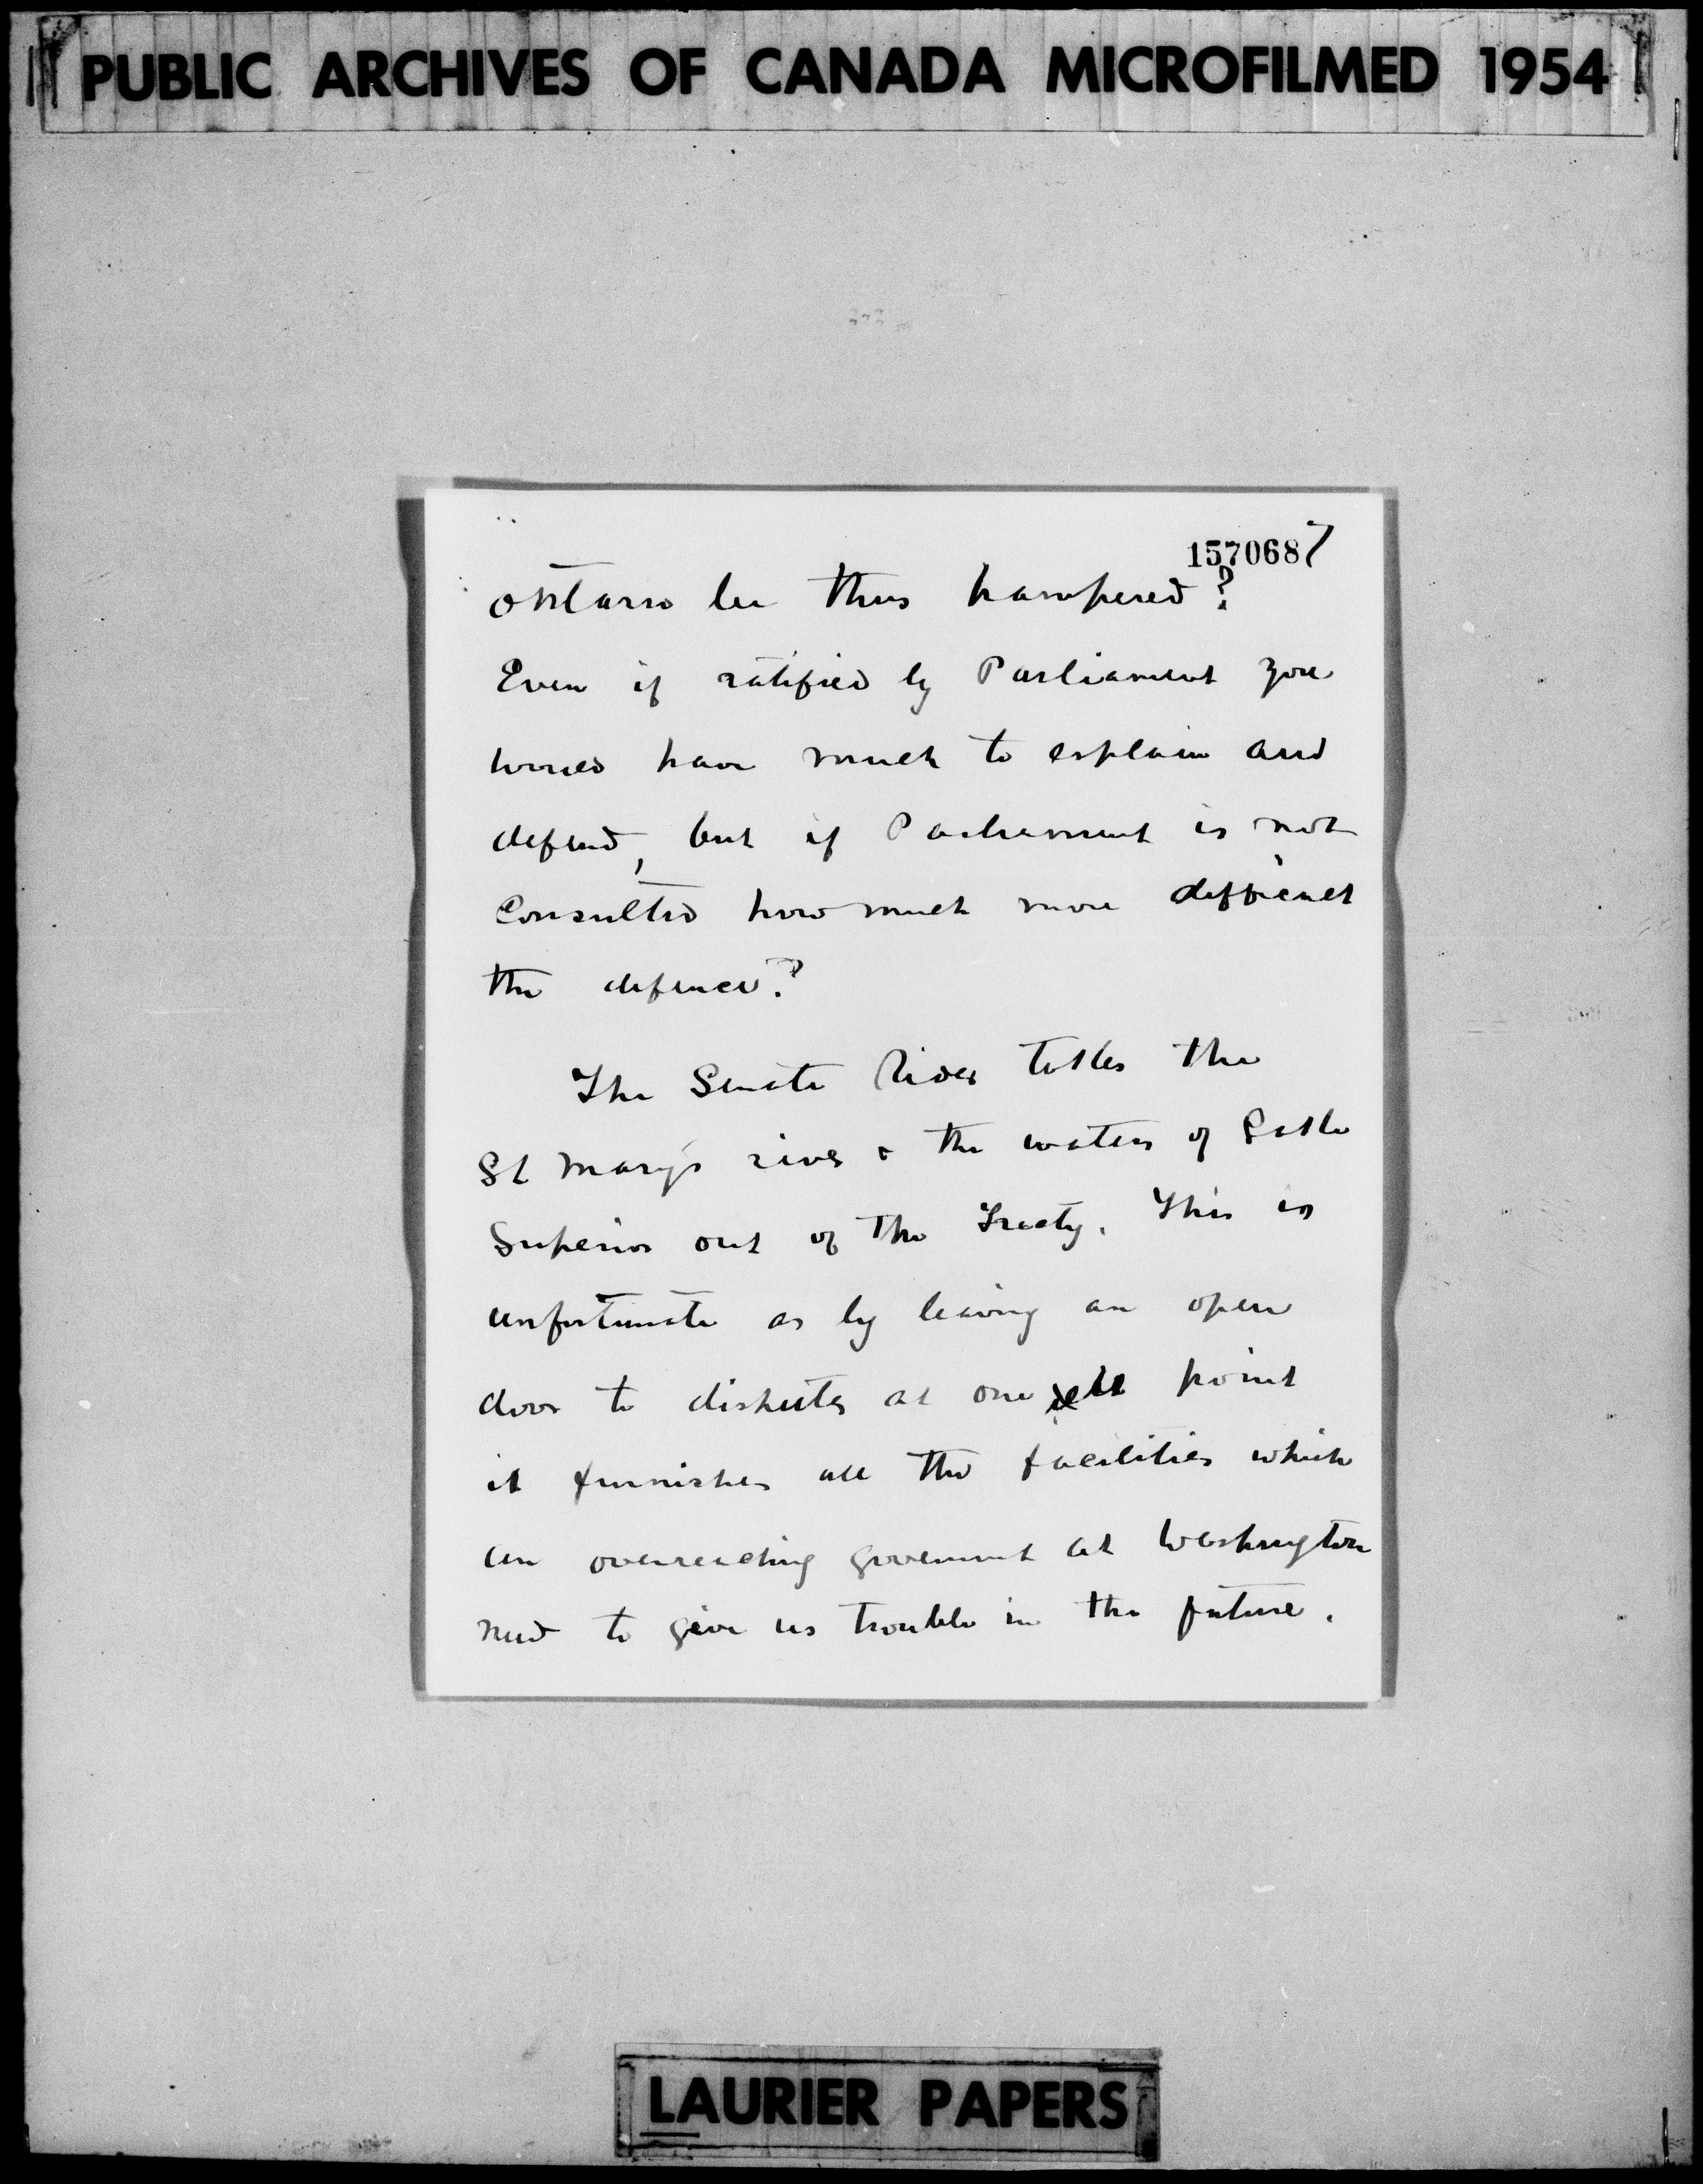 PUBLIC ARCHIVES OF CANADA MICROFILMED 1954
1570687
Ontario be thus hampered?
Even if ratified by Parliament you
would have much to explain and
defend, but if Parliament is not
consulted how much more difficult
the defence?
The Senate Rider takes the
St Mary's river & the waters of Lake
Superior out of the Treaty. This is
unfortunate as by leaving an open
door to disputes at one point
it furnishes all the facilities which
an overreaching government at Washington
need to give us trouble in the future.
LAURIER PAPERS